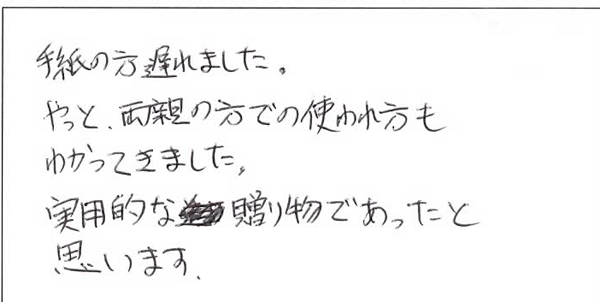 手紙の方遅れました。
やっと、両親の方での使われ方も
わかってきました。
実用的な贈り物であったと
思います.